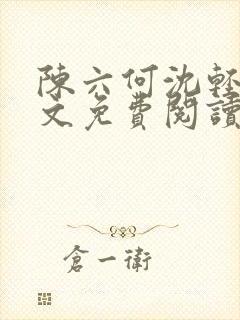 陳六何沈輕
文免費閱讀
倉一衛